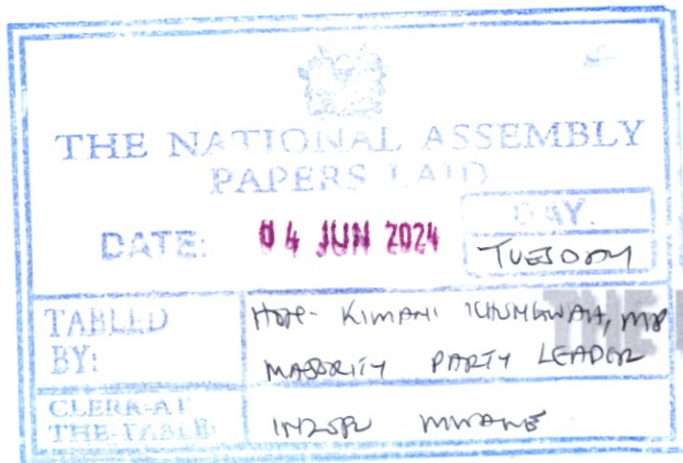 THE NATIONAL ASSEMBLY
PAPERS LAID
DATE: 04 JUN 2024
DAY.
TUESDAY
TABLED BY:
HON. KIMANI ICHUNGWAH, MP
MAJORITY PARTY LEADER
CLERK-AT THE-TABLE:
THE